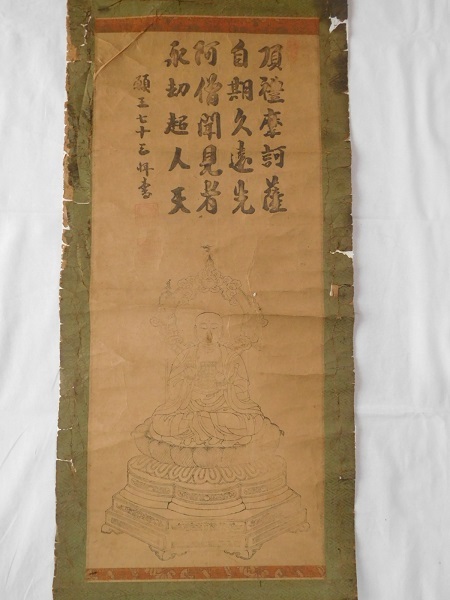 頂禮摩訶薩
自期久遠先
阿僧聞見者
永劫超人天
願王七十三恠書